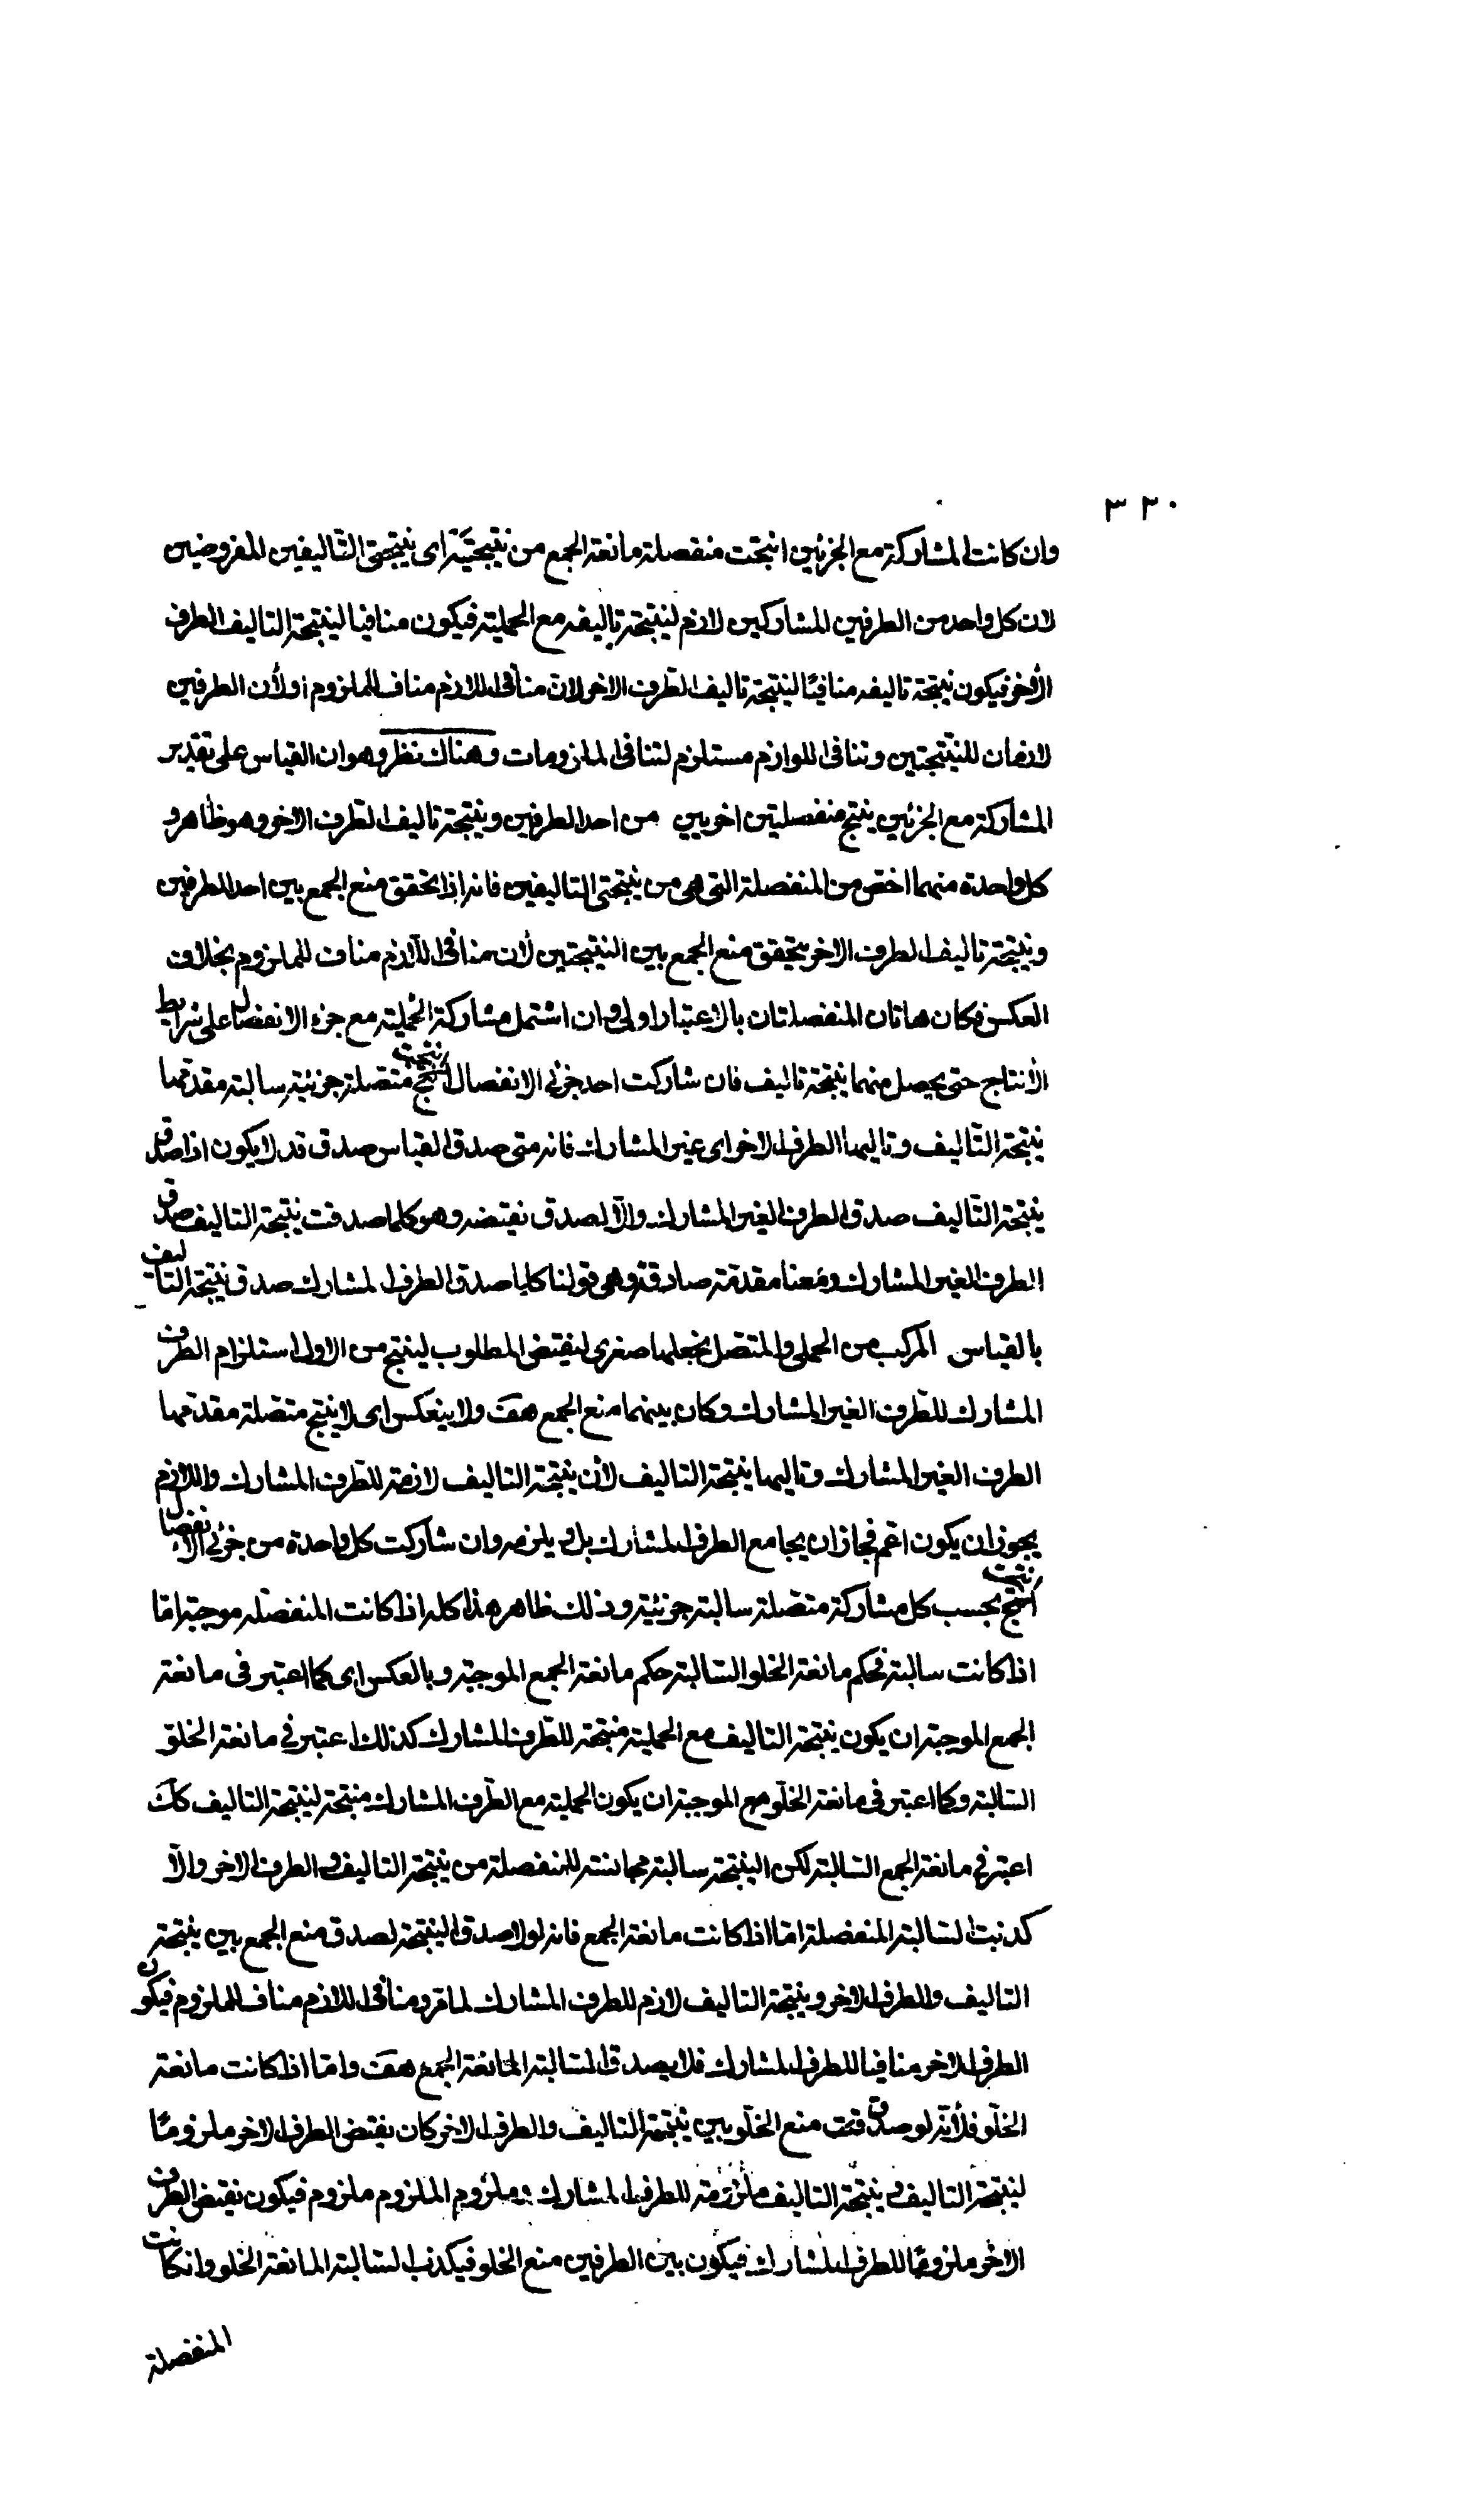 ٣٢٠
وان كانت المشاركة مع الجزئين انتجت منفصلة مانعة الجمع من نتيجتيه اى نتيجتى التاليفين المفروضين
لان كل واحد من الطرفين المشاركين لازم لنتيجة تاليفه مع الحملية فيكون منافيا لنتيجة التاليف الطرف
الاخر فيكون نتيجة تاليفه منافيًا لنتيجة تاليف الطرف الاخر لان منافى اللازم مناف للملزوم او لأن الطرفين
لازمان للنتيجتين وتنافى اللوازم مستلزم لتنافى الملزومات وهناك نظر وهو ان القياس على تقدير
المشاركة مع الجزئين ينتج منفصلتين اخريين من احد الطرفين ونتيجة تاليف الطرف الاخر وهو ظاهر و
كل واحدة منهما اخص من المنفصلة التى هى من نتيجتى التاليفين فانه اذا تحقق منع الجمع بين احد الطرفين
ونتيجة تاليف الطرف الاخر يتحقق منع الجمع بين النتيجتين لأن منافى اللازم مناف للملزوم بخلاف
العكس فكان هاتان المنفصلتان بالاعتبار اولى وان اشتمل مشاركة الحملية مع جزء الانفصال على شرايط
الأنتاج حتى يحصل منهما نتيجة تاليف فان شاركت احد جزئى الانفصال انتجت متصلة جزئية سالبة مقدمها
نتيجة التأليف وتاليها الطرف الاخر اى غير المشارك فانه متى صدق القياس صدق قد لا يكون اذا صدق
نتيجة التأليف صدق الطرف الغير المشارك والا لصدق نقيضه وهو كلما صدقت نتيجة التاليف صدق
الطرف الغير المشارك ومعنا مقدمة صادقة وهى قولنا كلما صدق الطرف المشارك صدق نتيجة التاليف
بالقياس المركب من الحملى والمتصل نجعلها صغرى لنقيض المطلوب لينتج من الاول استلزام الطرف
المشارك للطرف الغير المشارك وكان بينهما منع الجمع هف ولا ينعكس اى لا ينتج متصلة مقدمها
الطرف الغير المشارك وتاليها نتيجة التاليف لأن نتيجة التاليف لازمة للطرف المشارك واللازم
يجوز ان يكون اعم فجاز ان يجامع الطرف المشارك بل ويلزمه وان شاركت كل واحدة من جزئى الانفصال
انتجت بحسب كل مشاركة متصلة سالبة جزئية وذلك ظاهر هذا كله اذا كانت المنفصله موجبة امّا
اذا كانت سالبة فحكم مانعة الخلو السالبة حكم مانعة الجمع الموجبة وبالعكس اى كما اعتبر فى مانعة
الجمع الموجبة ان يكون نتيجة التاليف مع الحملية منتجة للطرف المشارك كذلك اعتبر فى مانعة الخلو
السالبة وكما اعتبر فى مانعة الخلو مع الموجبة ان يكون الحملية مع الطرف المشارك منتجة لنتيجة التاليف كك
اعتبر فى مانعة الجمع السالبة لكن النتيجة سالبة مجانسة للمنفصلة من نتيجة التاليف والطرف الاخر والا
كذبت السالبة المنفصلة امّا اذا كانت مانعة الجمع فانه لولا صدق النتيجة لصدق منع الجمع بين نتيجة
التاليف والطرف الاخر ونتيجة التاليف لازم للطرف المشارك لما مر ومنافى اللازم مناف للملزوم فيكون
الطرف الاخر منافيا للطرف المشارك فلا يصدق السالبة المانعة الجمع هف وامّا اذا كانت مانعة
الخلو فلأنه لو صدق منع الخلو بين نتيجة التاليف والطرف الاخر كان نقيض الطرف الاخر ملزومًا
لنتيجة التاليف ونتيجة التاليف ملزومة للطرف المشارك وملزوم الملزوم ملزوم فيكون نقيض الطرف
الاخر ملزومًا للطرف المشارك فيكون بين الطرفين منع الخلو فيكذب السالبة المانعة الخلو وان كانت
المنفصلة